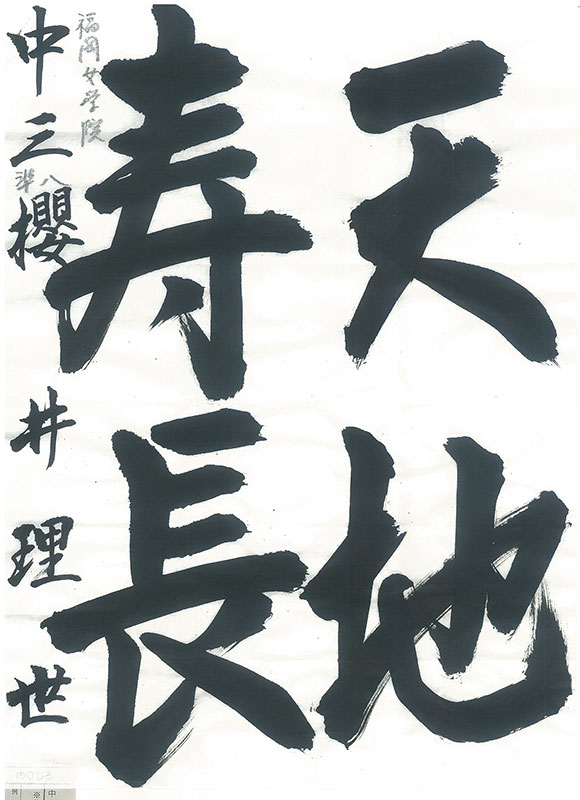 天地
寿長
福岡女学院
準八
中三 櫻井理世
のりしろ
例 ※ 中